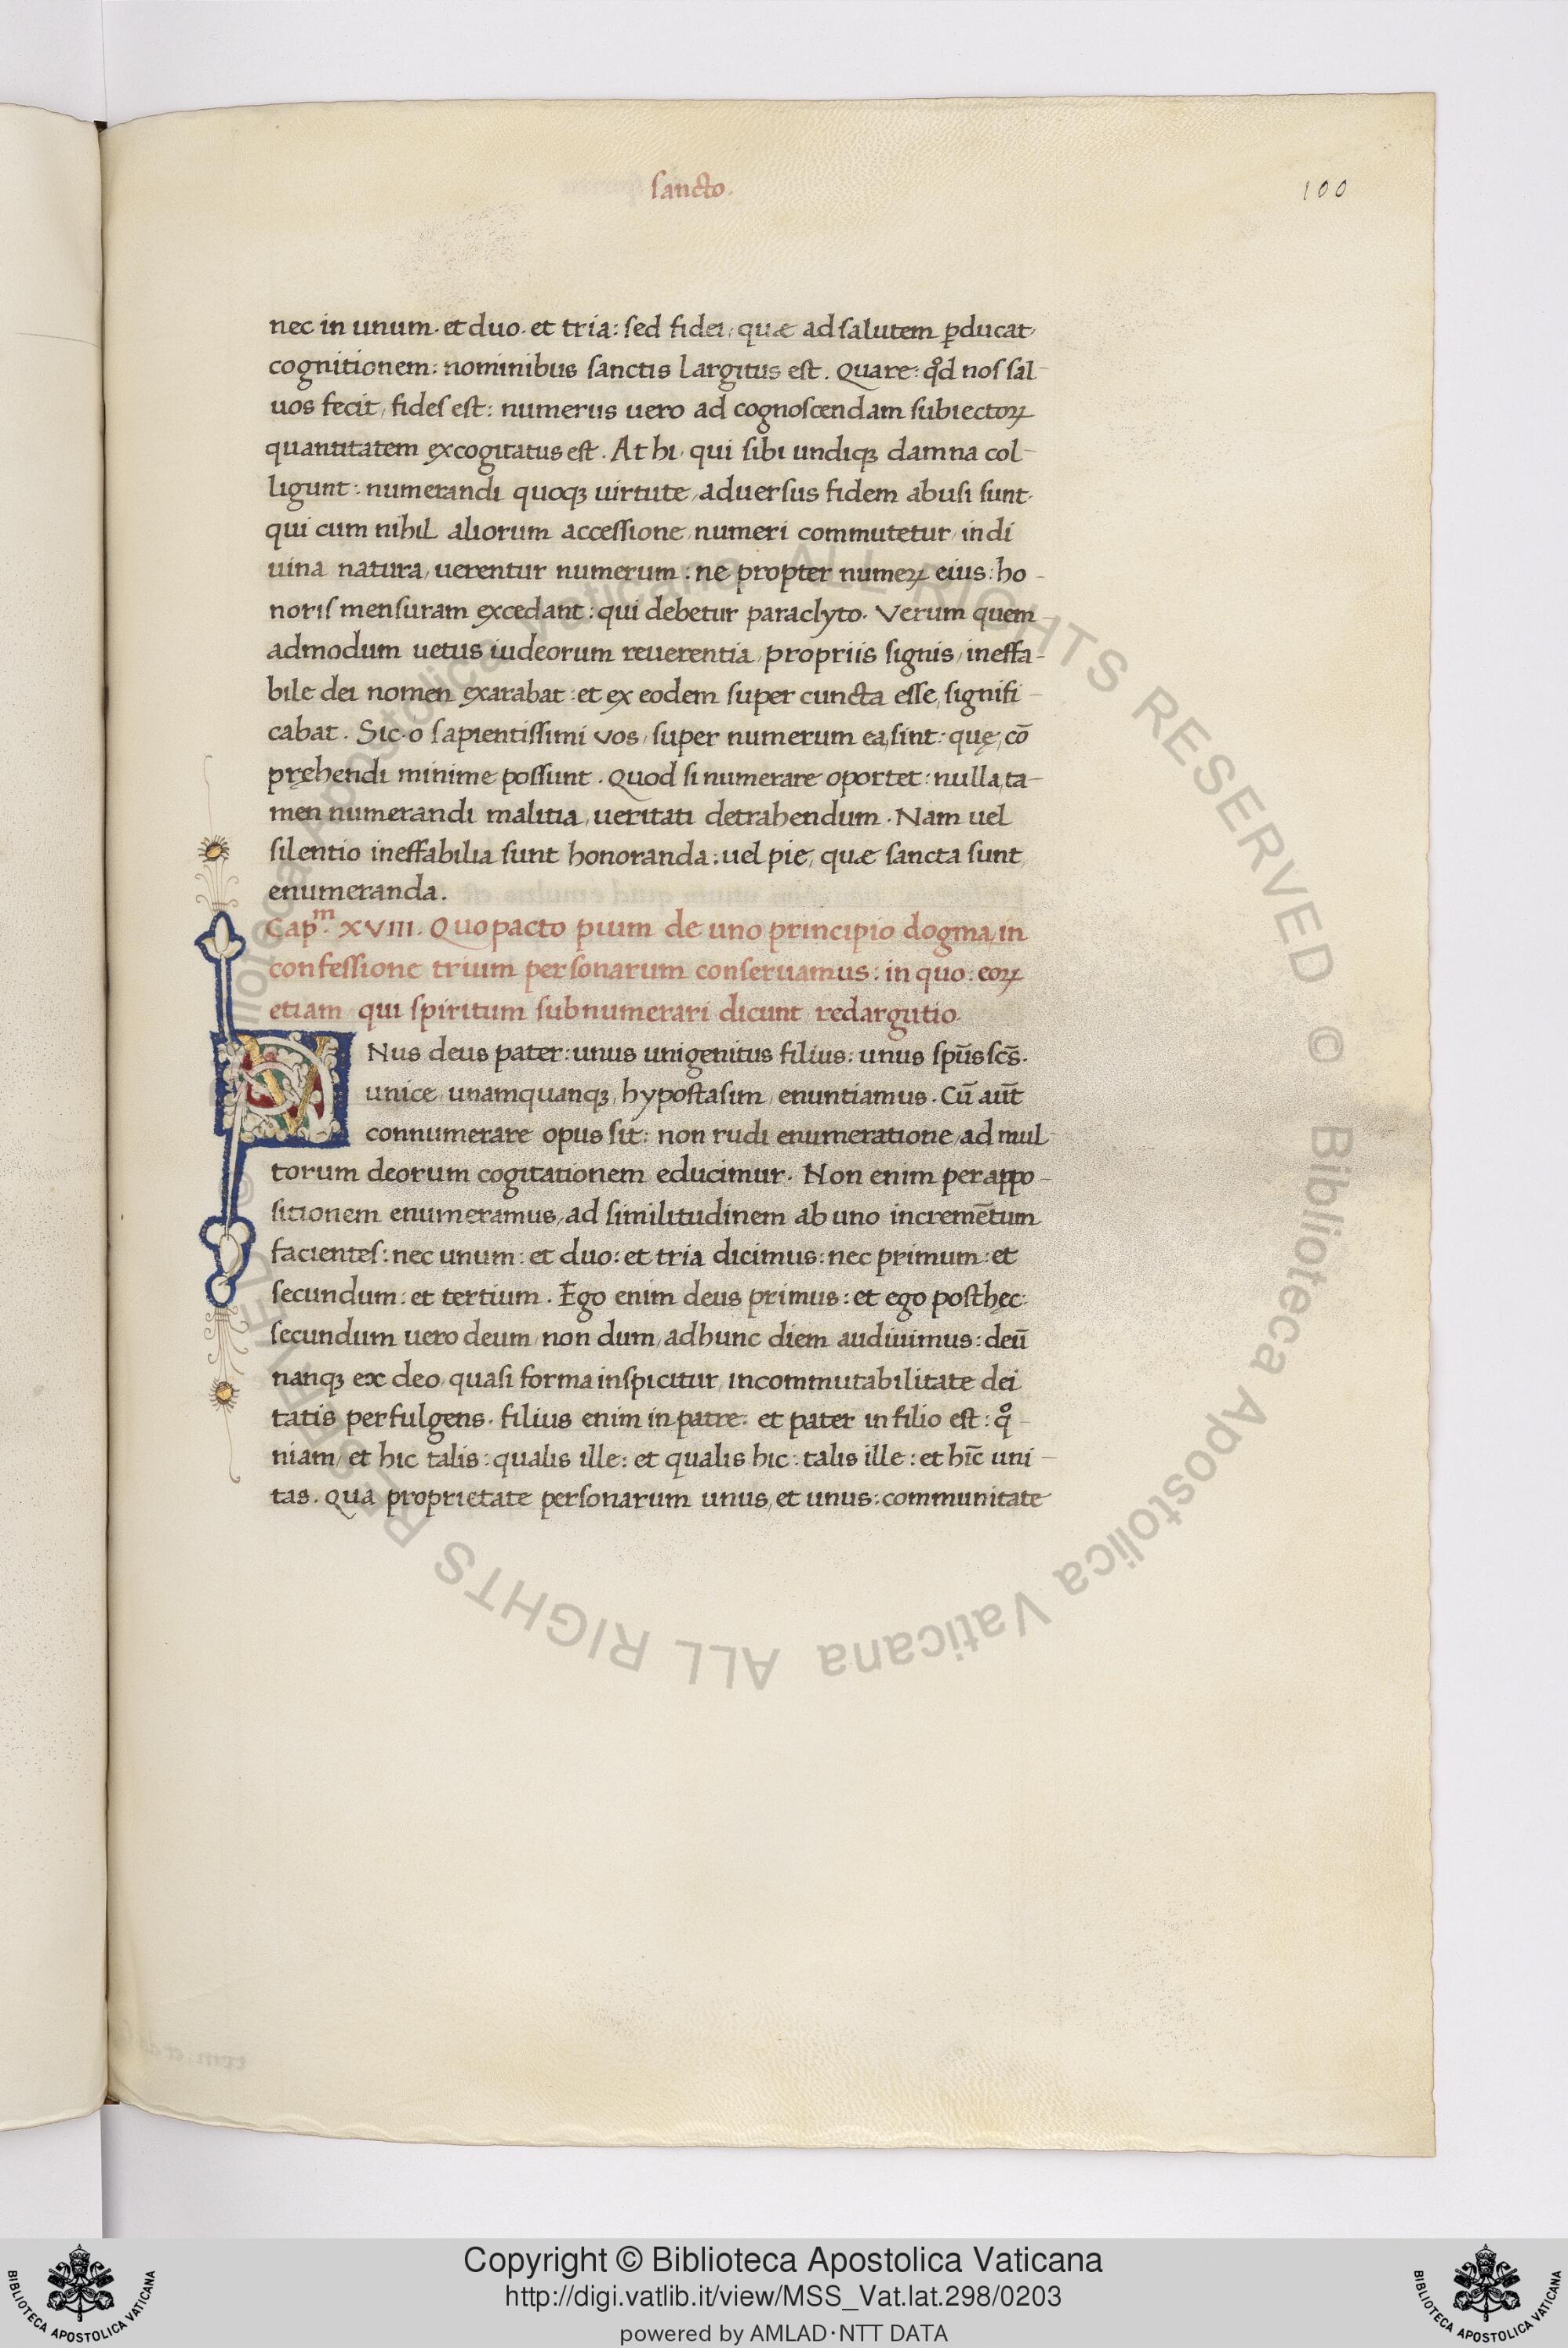 sancto.
100
nec in unum. et duo. et tria: sed fidei, quæ ad salutem ꝑducat,
cognitionem: nominibus sanctis largitus est. Quare: qd̊ nos sal-
uos fecit, fides est: numerus uero ad cognoscendam subiectoꝝ
quantitatem excogitatus est. At hi, qui sibi undiqꝫ damna col-
ligunt: numerandi quoqꝫ uirtute, aduersus fidem abusi sunt.
qui cum nihil aliorum accessione, numeri commutetur, in di
uina natura, uerentur numerum: ne propter numeꝝ eius: ho-
noris mensuram excedant: qui debetur paraclyto. Verum quem-
admodum uetus iudeorum reuerentia, propriis signis, ineffa-
bile dei nomen exarabat: et ex eodem super cuncta esse, signifi-
cabat. Sic. o sapientissimi vos, super numerum ea, sint: quę, cō
pręhendi minime possunt. Quod si numerare oportet: nulla, ta-
men numerandi malitia, ueritati detrahendum. Nam uel
silentio ineffabilia sunt honoranda: uel pie, quæ sancta sunt,
enumeranda.
Capᵐ. XVIII. Quo pacto pium de uno principio dogma, in
confessione trium personarum conseruamus: in quo: eoꝝ
etiam qui spiritum subnumerari dicunt, redargutio.
VNus deus pater: unus unigenitus filius: unus spūs scs̄.
unice, unamquanqꝫ, hypostasim, enuntiamus. Cū aut̄
connumerare opus sit: non rudi enumeratione, ad mul-
torum deorum cogitationem educimur. Non enim per appo-
sitionem enumeramus, ad similitudinem ab uno incremētum
facientes: nec unum: et duo: et tria dicimus: nec primum: et
secundum: et tertium. Ego enim deus primus: et ego post hęc:
secundum uero deum, non dum, adhunc diem audiuimus: deū
nanqꝫ ex deo, quasi forma inspicitur, incommutabilitate dei
tatis perfulgens. filius enim in patre. et pater in filio est: qº-
niam, et hic talis: qualis ille: et qualis hic: talis ille: et hīc uni-
tas. Qua proprietate personarum unus, et unus: communitate
Copyright © Biblioteca Apostolica Vaticana
http://digi.vatlib.it/view/MSS_Vat.lat.298/0203
powered by AMLAD·NTT DATA
BIBLIOTECA APOSTOLICA VATICANA
BIBLIOTECA APOSTOLICA VATICANA
© Biblioteca Apostolica Vaticana ALL RIGHTS RESERVED © Biblioteca Apostolica Vaticana ALL RIGHTS RESERVED